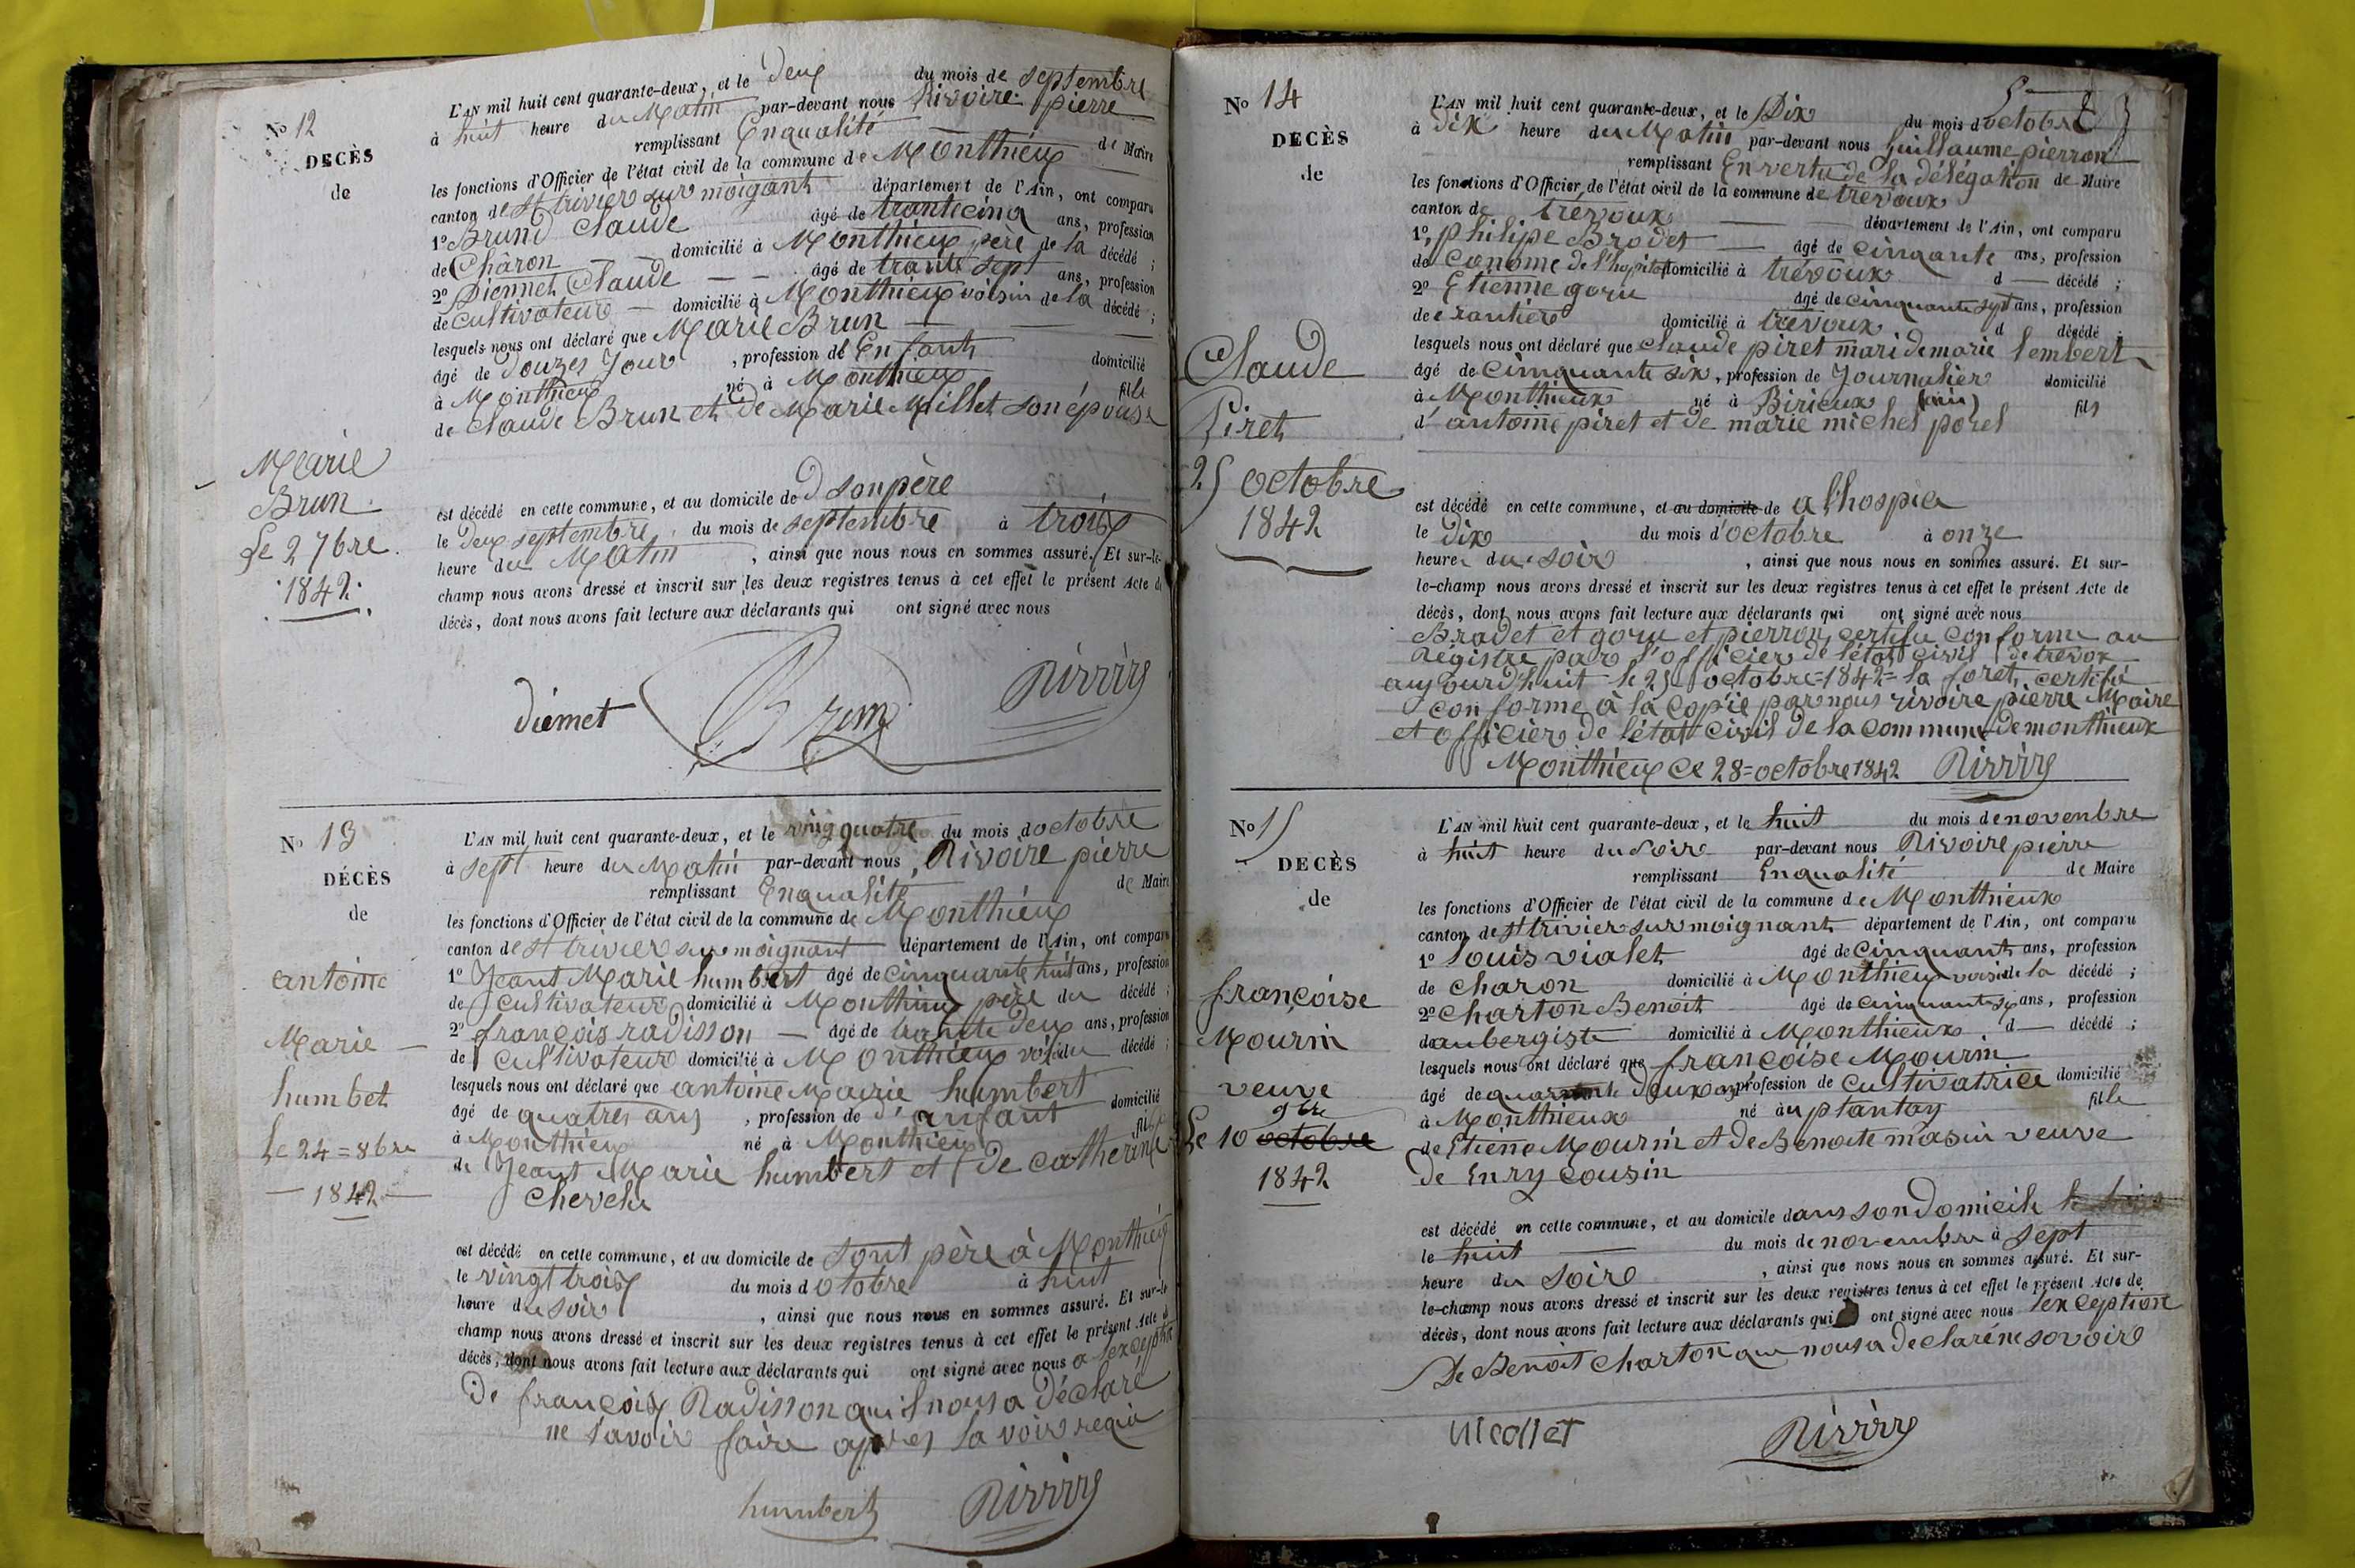 No 12
DECÈS
de
Marie
Brun
Le 2 7bre
1842
L'AN mil huit cent quarante-deux, et le Deux du mois de septembre
à huit heure du Matin par-devant nous Rivoire pierre
remplissant Enqualité de Maire
les fonctions d'Officier de l'état civil de la commune de Monthieux
canton de st trivier sur moignant département de l'Ain, ont comparu
1o Brund Claude âgé de trantecinq ans, profession
de Châron domicilié à Monthieux père de la décédé ;
2o Diennet Claude âgé de trante sept ans, profession
de cultivateur domicilié à Monthieux voisin de la décédé ;
lesquels nous ont déclaré que Marie Brun
âgé de douzes Jour , profession de Enfant domicilié
à Monthieux né à Monthieux fille
de Claude Brun et de Marie Millet son épouse
est décédé en cette commune, et au domicile de D son père
le deux septembre du mois de septembre à trois
heure du Matin , ainsi que nous nous en sommes assuré. Et sur-le-
champ nous avons dressé et inscrit sur les deux registres tenus à cet effet le présent Acte de
décès, dont nous avons fait lecture aux déclarants qui ont signé avec nous
diemet Brun
No 13
DÉCÈS
de
antoine
Marie
humbet
Le 24 = 8bre
1842
L'AN mil huit cent quarante-deux, et le vingquatre du mois doctobre
à sept heure du Matin par-devant nous Rivoire pierre
remplissant Enqualité de Maire
les fonctions d'Officier de l'état civil de la commune de Monthieux
canton de st trivier sur moignant département de l'Ain, ont comparu
1o Jeant Marie humbert âgé de cinquante huit ans, profession
de cultivateur domicilié à Monthieux père du décédé ;
2o françois radisson âgé de trante deux ans, profession
de cultivateur domicilié à Monthieux décédé ;
lesquels nous ont déclaré que antoine Marie humbert
âgé de quatres ans , profession de d'anfant domicilié
à Monthieux né à Monthieux fils
de Jeant Marie humbert et de catherine
Chevelu
est décédé en cette commune, et au domicile de sont père à Monthieux
le vingt trois du mois d otobre à huit
heure du soir , ainsi que nous nous en sommes assuré. Et sur-le
champ nous avons dressé et inscrit sur les deux registres tenus à cet effet le présent Acte de
décès, dont nous avons fait lecture aux déclarants qui ont signé avec nous a lexception
De françois Radisson quil nousa déclaré
ne savoir faire apres la voir requi
humbert
No 14
DECÈS
de
Claude
Piret
25 octobre
1842
L'AN mil huit cent quarante-deux, et le Dix du mois d octobre
à dix heure du Matin par-devant nous Guillaume pierron
remplissant En vertu de la délégation de Maire
les fonctions d'Officier de l'état civil de la commune de trévoux
canton de trévoux département de l'Ain, ont comparu
1o, philipe Brodet âgé de cinqante ans, profession
de Conome de l'hopital domicilié à trévoux d décédé ;
2o Etienne goru âgé de cinquante sept ans, profession
de rantier domicilié à trévoux d décédé ;
lesquels nous ont déclaré que claude piret mari de marie lembert
âgé de cinquante six, profession de Journalier domicilié
à Monthieux né à Birieux (ain) fils
d' antoine piret et de marie michel porel
est décédé en cette commune, et au domicile de a l'hospice
le dix du mois d'octobre à onze
heure du soir , ainsi que nous nous en sommes assuré. Et sur-
le-champ nous avons dressé et inscrit sur les deux registres tenus à cet effet le présent Acte de
décès, dont nous avons fait lecture aux déclarants qui ont signé avec nous
Bradet et goru et pierron, certifie conforme au
Régistre par l'officier de l'état civil de trevox
aujourd'huit le 25 octobre = 1842 = la foret, certifié
conforme à la copie par nous rivoire pierre Maire
et officier de l'état civil de la commune de monthieux
Monthieux ce 28 = octobre 1842
No 15
DECÈS
de
françoise
Mourin
veuve
9bre
Le 10 octobre
1842
L'AN mil huit cent quarante-deux, et le huit du mois de novenbre
à huit heure du soir par-devant nous Rivoire pierre
remplissant Enqualité de Maire
les fonctions d'Officier de l'état civil de la commune de Monthieux
canton de st trivier sur moignant département de l'Ain, ont comparu
1o louis vialet âgé de cinquant ans, profession
de charon domicilié à Monthieux voisin de la décédé ;
2o Charton Benoit âgé de cinquante ans, profession
de aubergiste domicilié à Monthieux d décédé ;
lesquels nous ont déclaré que françoise Mourin
âgé de quarante deux ans profession de cultivatrice domicilié
à Monthieux né au plantay fille
de Etiene Mourin et de Benoite masin veuve
de Enry cousin
est décédé en cette commune, et au domicile dans son domicile
le huit du mois de novembre à sept
heure du soire , ainsi que nous nous en sommes assuré. Et sur-
le-champ nous avons dressé et inscrit sur les deux registres tenus à cet effet le présent Acte de
décès, dont nous avons fait lecture aux déclarants qui ont signé avec nous lexception
De Benoit Charton que nousa declaré ne savoire